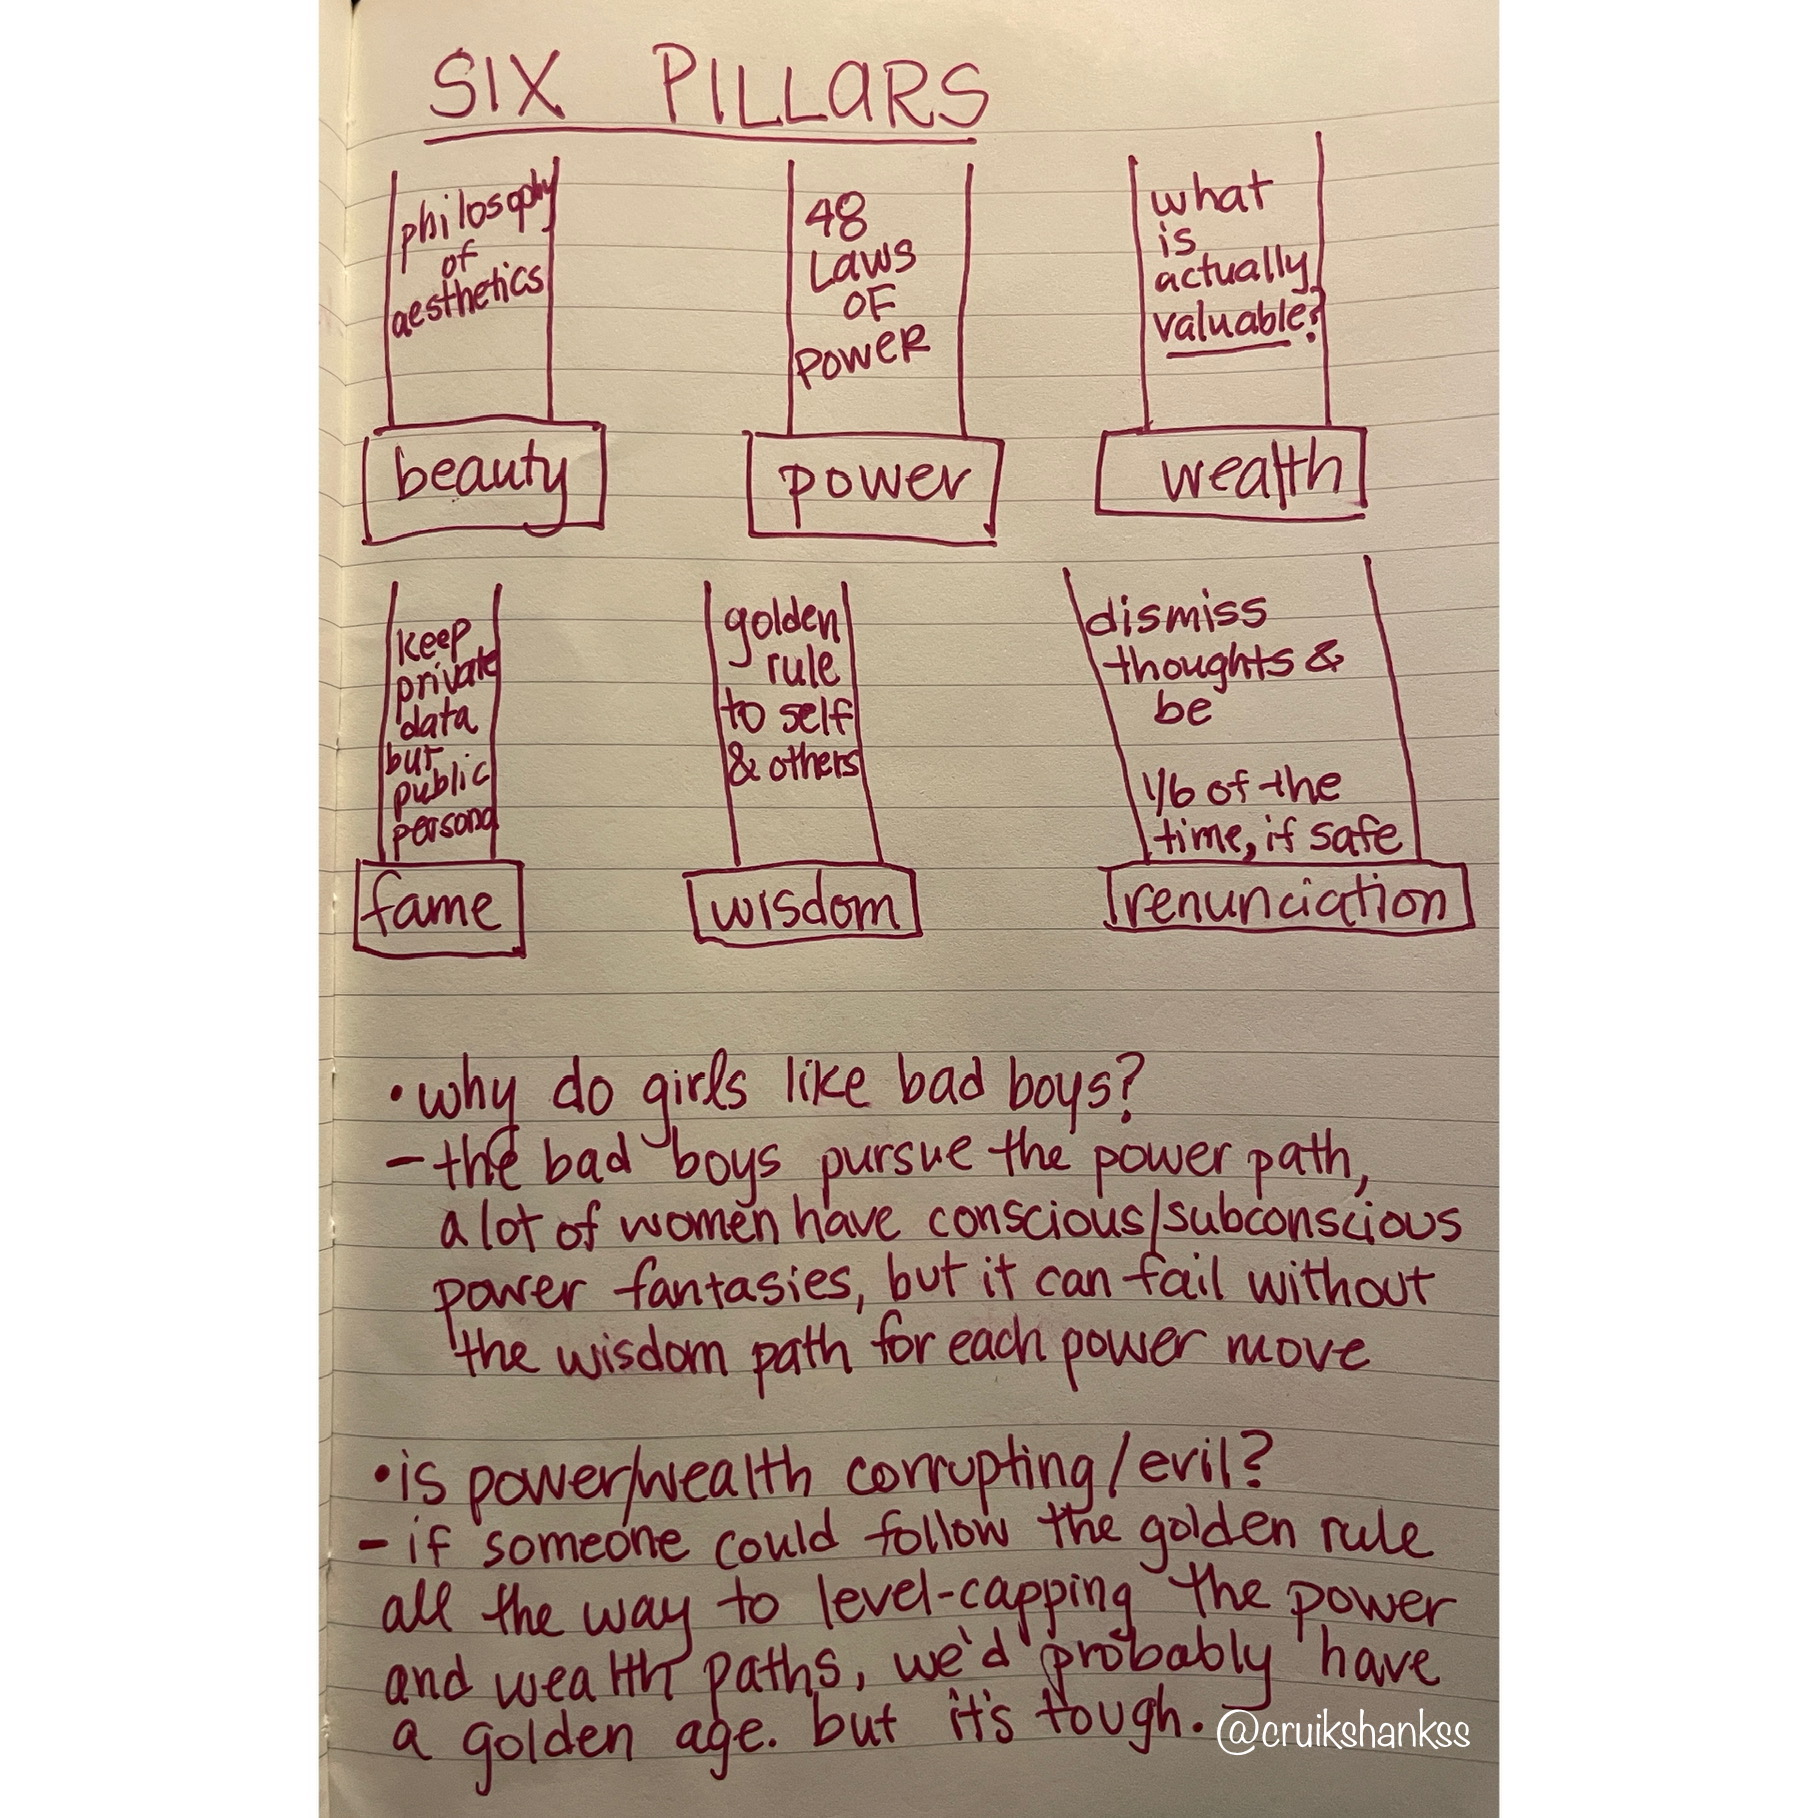 SIX PILLARS
philosophy
of
aesthetics
beauty
48
LAWS
OF
POWER
power
what
is
actually
valuable?
wealth
keep
private
data
but
public
persona
fame
golden
rule
to self
& others
wisdom
dismiss
thoughts &
be
1/6 of the
time, if safe
renunciation
• why do girls like bad boys?
- the bad boys pursue the power path,
a lot of women have conscious/subconscious
power fantasies, but it can fail without
the wisdom path for each power move
• is power/wealth corrupting/evil?
- if someone could follow the golden rule
all the way to level-capping the power
and wealth paths, we'd probably have
a golden age. but it's tough.
@cruikshankss